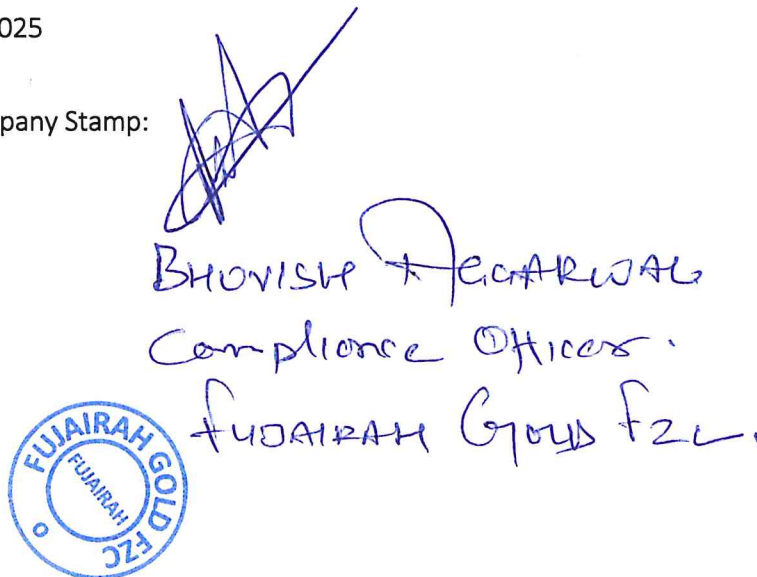 025
pany Stamp:
BHOVISH AGGARWAL
Compliance Officer.
FUJAIRAH GOLD FZC.
FUJAIRAH GOLD FZC
FUJAIRAH